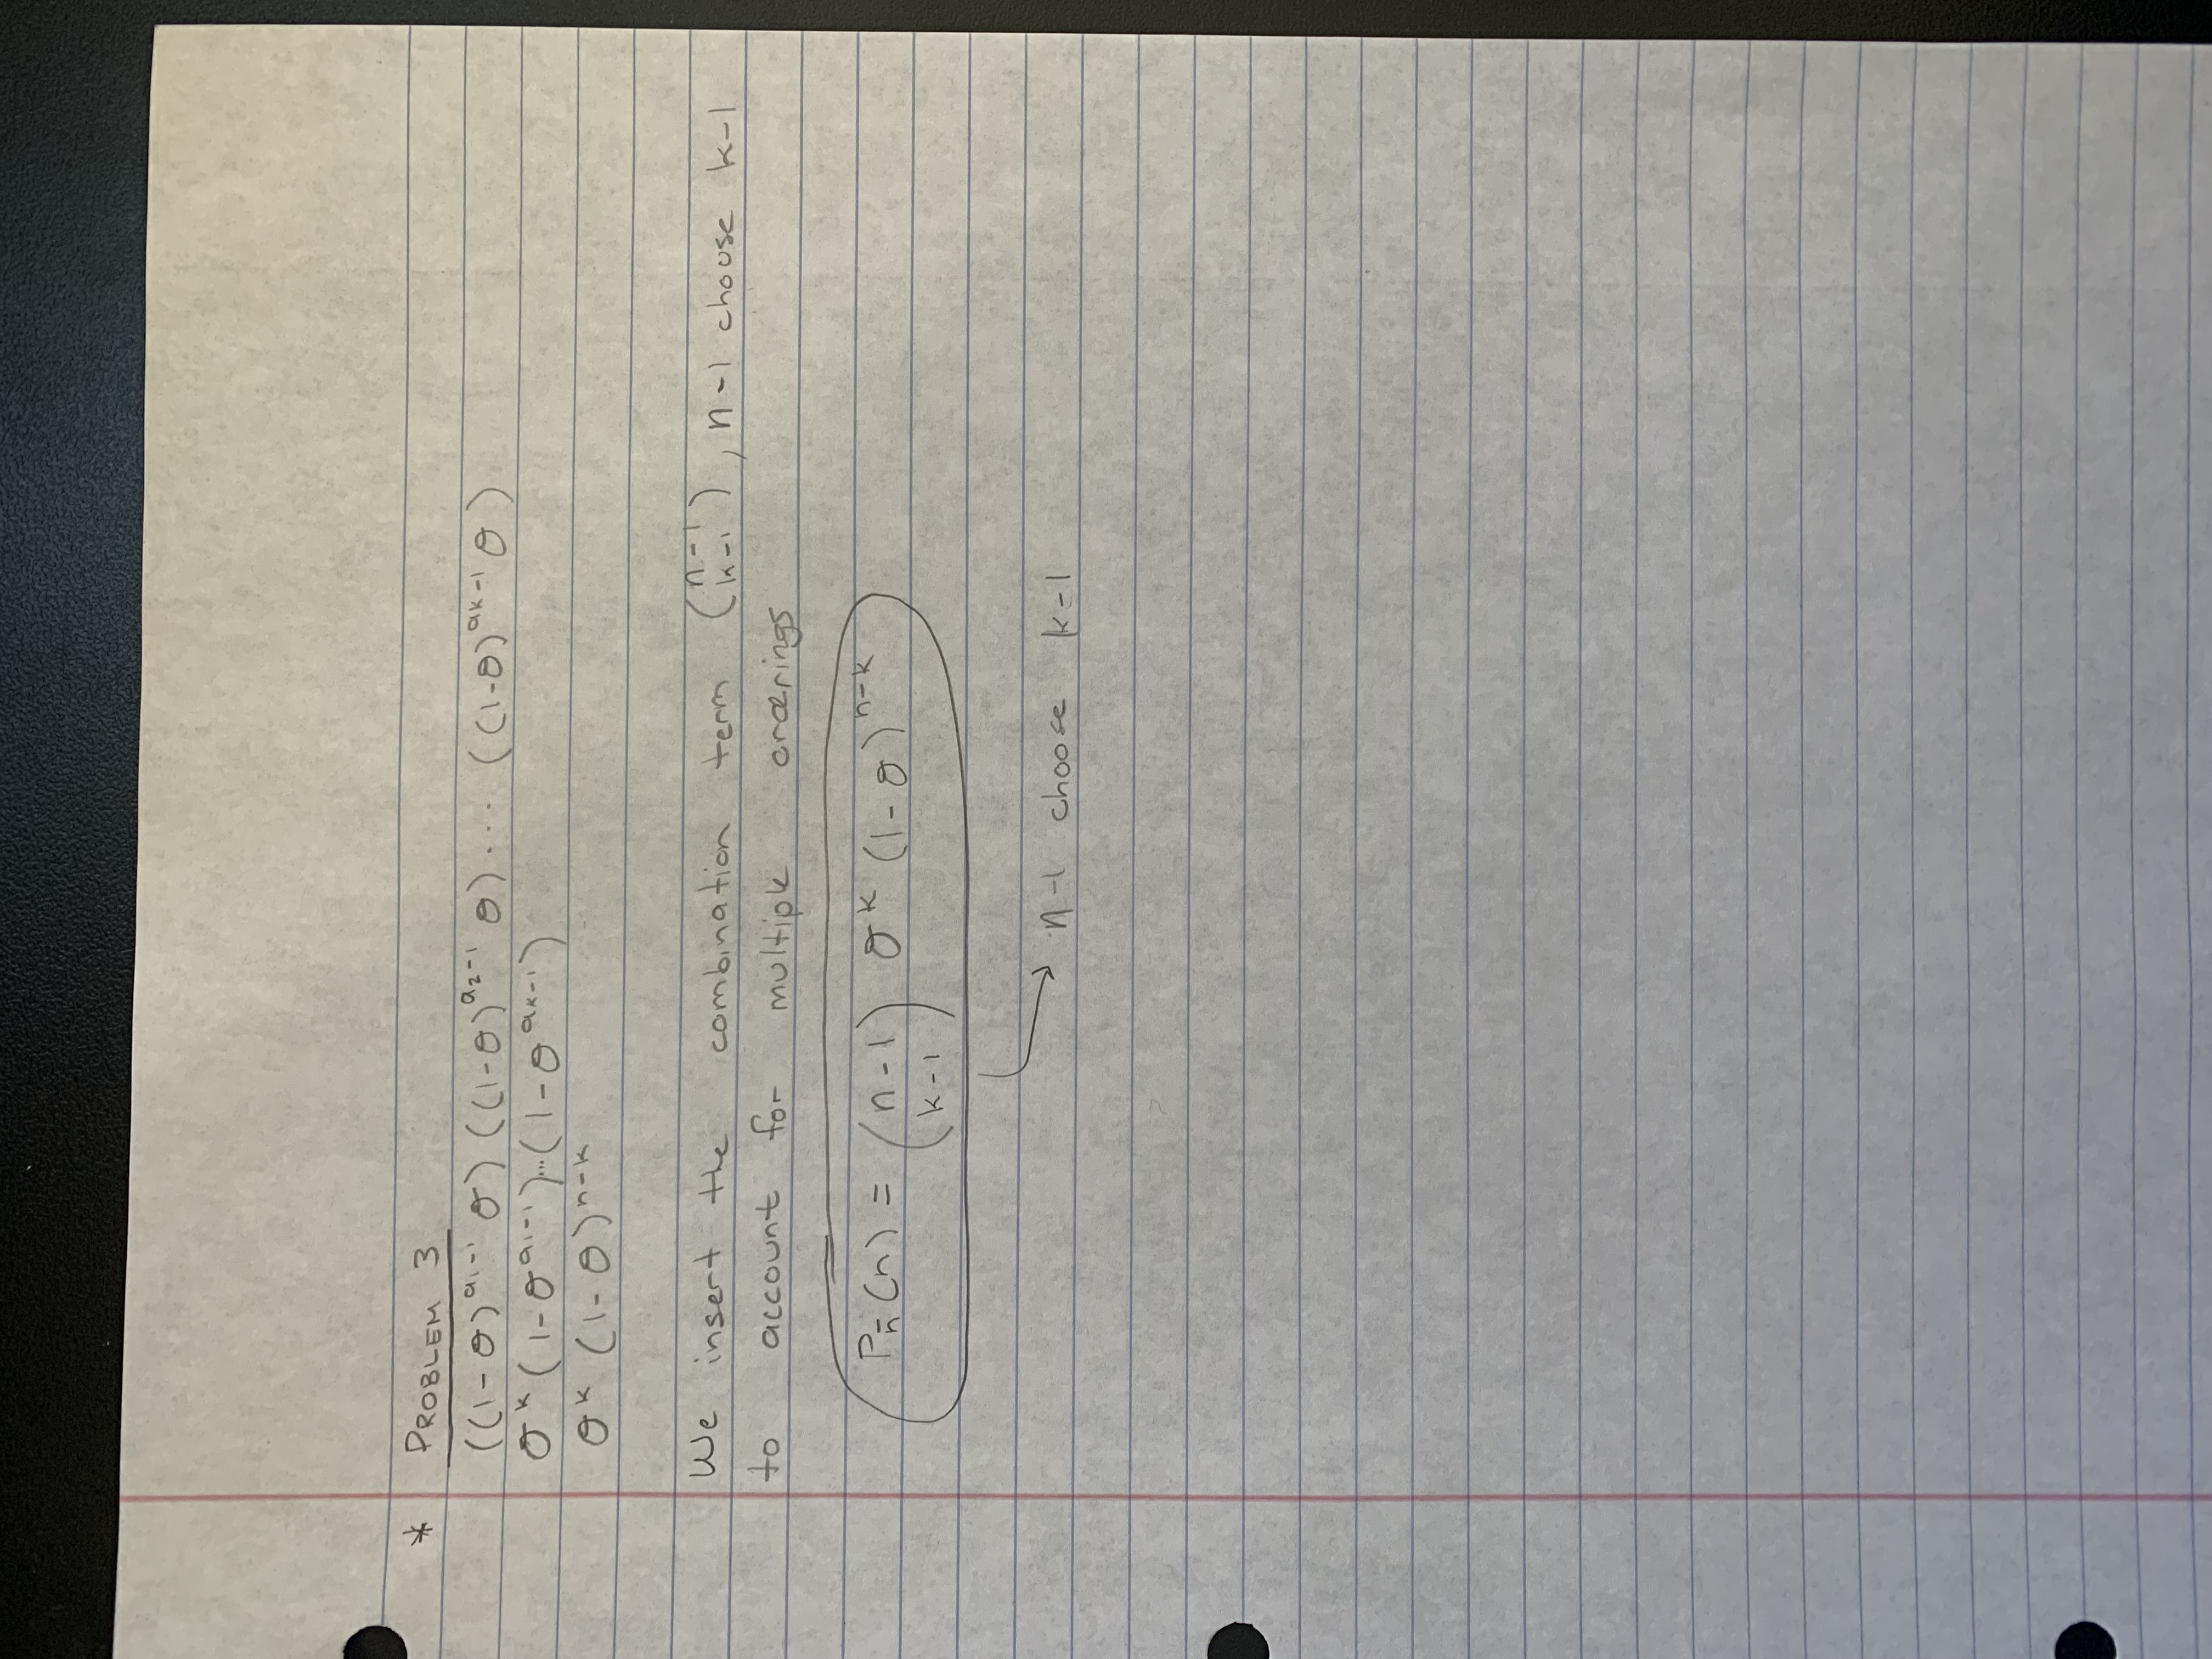 * PROBLEM 3
((1-θ)^{a₁-1} θ) ((1-θ)^{a₂-1} θ) ... ((1-θ)^{aₖ-1} θ)
θ^k (1-θ^{a₁-1})...(1-θ^{aₖ-1})
θ^k (1-θ)^{n-k}
We insert the combination term (n-1 k-1), n-1 choose k-1
to account for multiple orderings
P_{n̄}(n) = (n-1 k-1) θ^k (1-θ)^{n-k}
→ n-1 choose k-1